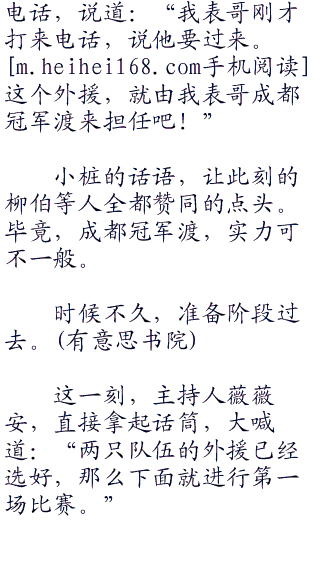 电话，说道：“我表哥刚才
打来电话，说他要过来。
[m.heihei168.com手机阅读]
这个外援，就由我表哥成都
冠军渡来担任吧！”
小桩的话语，让此刻的
柳伯等人全都赞同的点头。
毕竟，成都冠军渡，实力可
不一般。
时候不久，准备阶段过
去。(有意思书院)
这一刻，主持人薇薇
安，直接拿起话筒，大喊
道：“两只队伍的外援已经
选好，那么下面就进行第一
场比赛。”